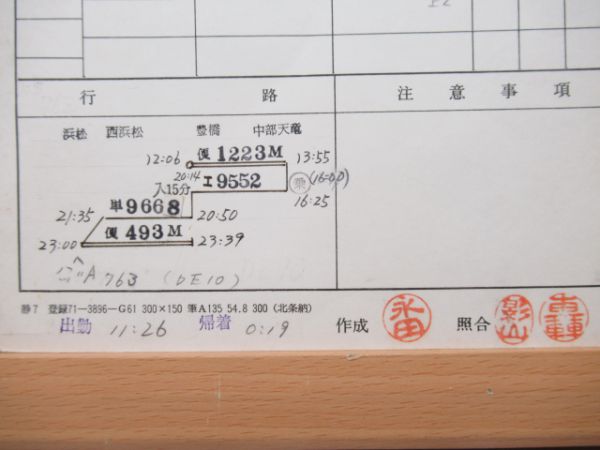 行路 注意事項
浜松 西浜松 豊橋 中部天竜
12:06 便1223M 13:55
20:14 エ9552 乗 (16:00)
入15分 16:25
21:35 単9668 20:50
23:00 便493M 23:39
A763 (DE10)
静7 登録71-3896-G61 300×150 筆A135 54.8 300 (北条納)
出勤 11:26 帰着 0:19 作成 永田 照合 影山